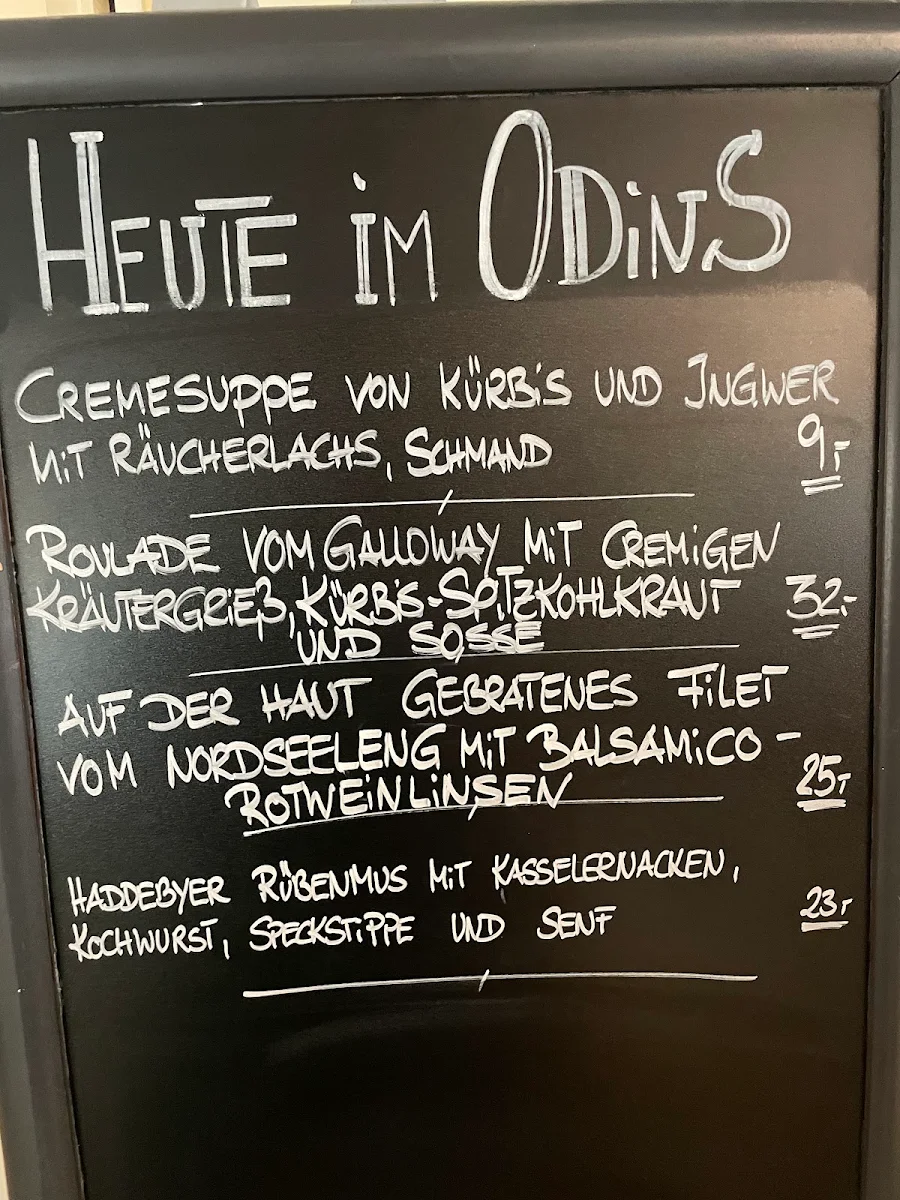 HEUTE IM ODINS
CREMESUPPE VON KÜRBIS UND INGWER
MIT RÄUCHERLACHS, SCHMAND 9,-
ROULADE VOM GALLOWAY MIT CREMIGEN
KRÄUTERGRIEß, KÜRBIS-SPITZKOHLKRAUT 32,-
UND SOSSE
AUF DER HAUT GEBRATENES FILET
VOM NORDSEELENG MIT BALSAMICO-
ROTWEINLINSEN 25,-
HADDEBYER RÜBENMUS MIT KASSELERNACKEN,
KOCHWURST, SPECKSTIPPE UND SENF 23,-